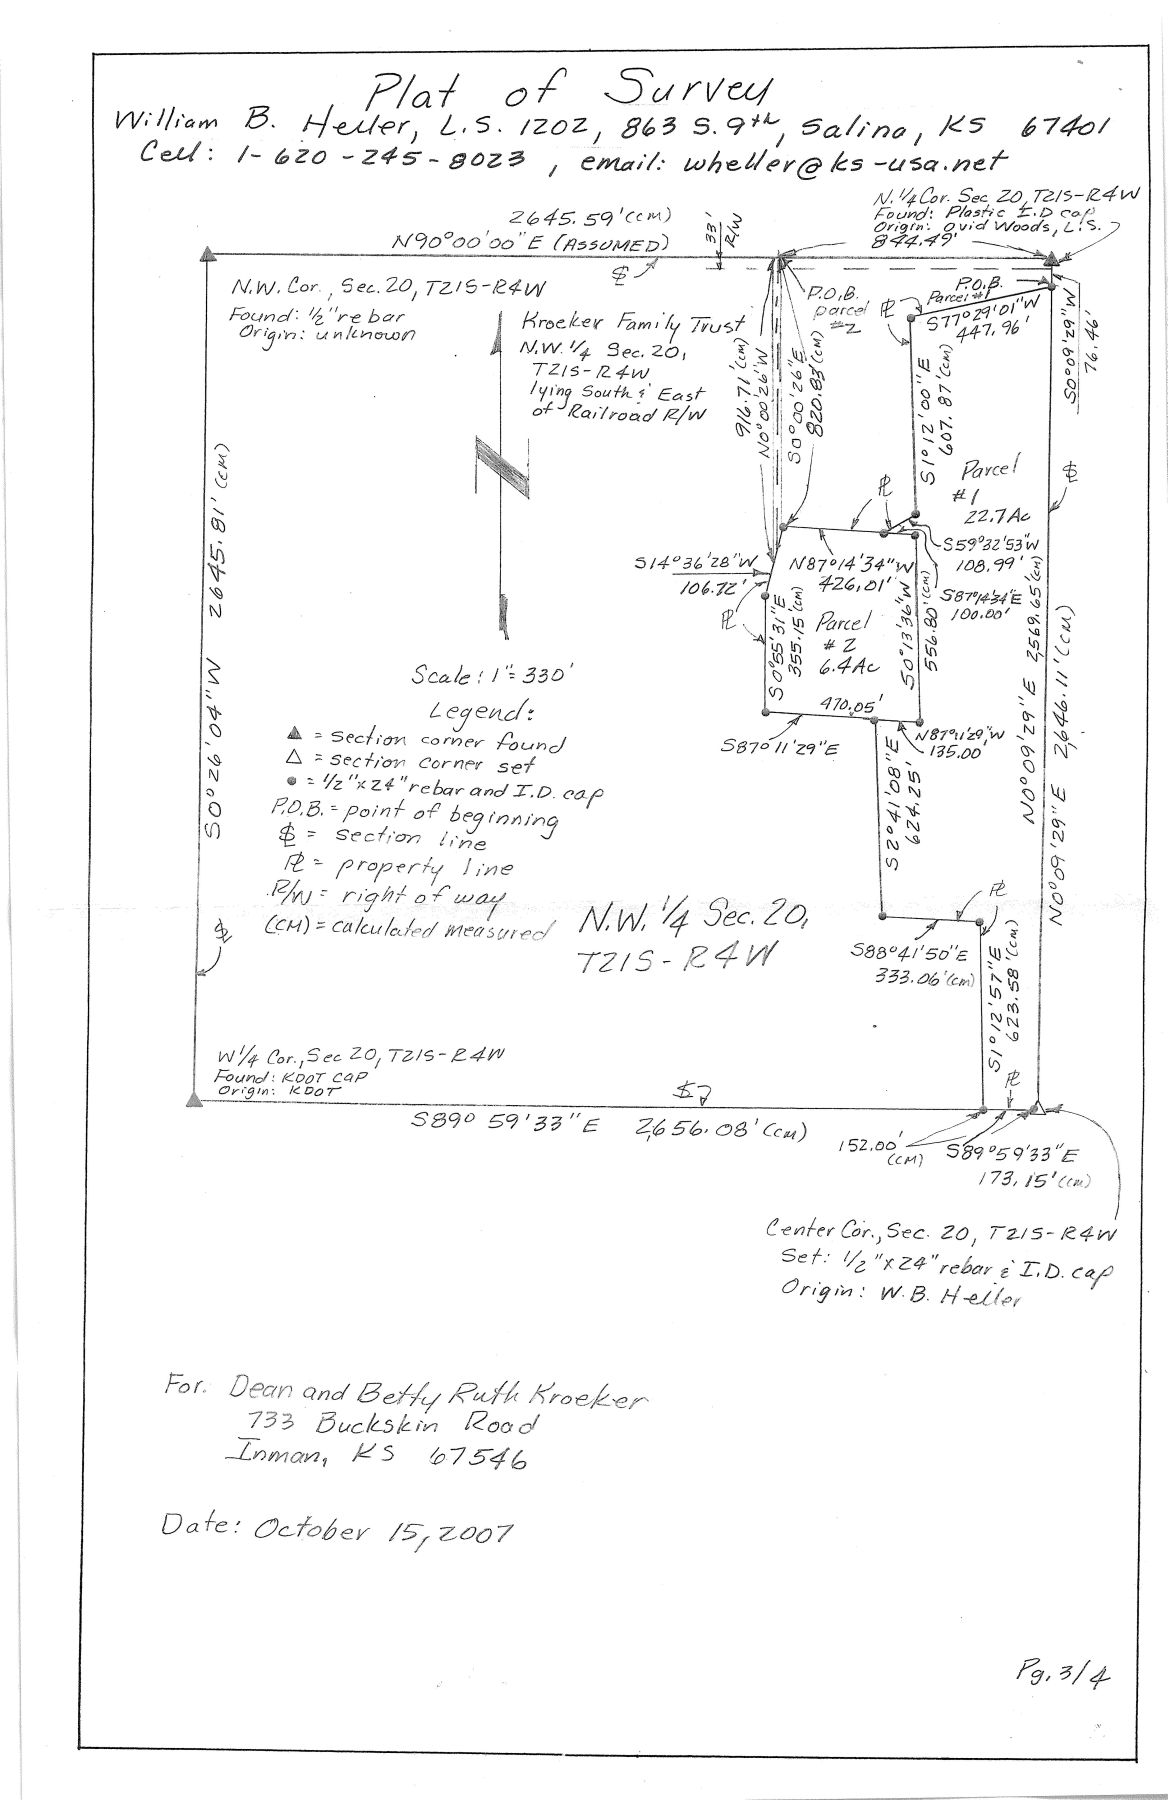 Plat of Survey
William B. Heller, L.S. 1202, 863 S. 9th, Salina, KS 67401
Cell: 1-620-245-8023, email: wheller@ks-usa.net
N. 1/4 Cor. Sec 20, T21S-R4W
Found: Plastic I.D cap
Origin: Ovid Woods, L.S.
844.49'
2645.59' (CM)
N90°00'00"E (ASSUMED)
33'
R/W
N.W. Cor., Sec. 20, T21S-R4W
Found: 1/2" rebar
Origin: unknown
Kroeker Family Trust
N.W. 1/4 Sec. 20,
T21S-R4W
lying South & East
of Railroad R/W
P.O.B.
parcel
#2
P.O.B.
Parcel #1
S77°29'01"W
447.96'
S0°09'29"W
76.46'
916.71' (CM)
N0°00'26"W
S0°00'26"E
820.83' (CM)
S1°12'00"E
607.87' (CM)
Parcel
#1
22.7 Ac
S59°32'53"W
108.99'
S87°14'34"E
100.00'
S14°36'28"W
106.72'
N87°14'34"W
426.01'
Parcel
#2
6.4 Ac
S0°55'31"E
355.15' (CM)
S0°13'36"W
556.80' (CM)
470.05'
S87°11'29"E
N87°11'29"W
135.00'
S2°41'08"E
624.25'
N0°09'29"E 2,569.65' (CM)
N0°09'29"E 2,646.11' (CM)
S0°26'04"W 2645.81' (CM)
Scale: 1"=330'
Legend:
▲ = section corner found
△ = section corner set
● = 1/2"x24" rebar and I.D. cap
P.O.B. = point of beginning
SL = section line
PL = property line
R/W = right of way
(CM) = calculated measured
N.W. 1/4 Sec. 20,
T21S-R4W
S88°41'50"E
333.06' (CM)
S1°12'57"E
623.58' (CM)
W 1/4 Cor., Sec 20, T21S-R4W
Found: KDOT CAP
Origin: KDOT
S89°59'33"E 2,656.08' (CM)
152.00'
(CM)
S89°59'33"E
173.15' (CM)
Center Cor., Sec. 20, T21S-R4W
Set: 1/2"x24" rebar & I.D. cap
Origin: W.B. Heller
For: Dean and Betty Ruth Kroeker
733 Buckskin Road
Inman, KS 67546
Date: October 15, 2007
Pg. 3/4